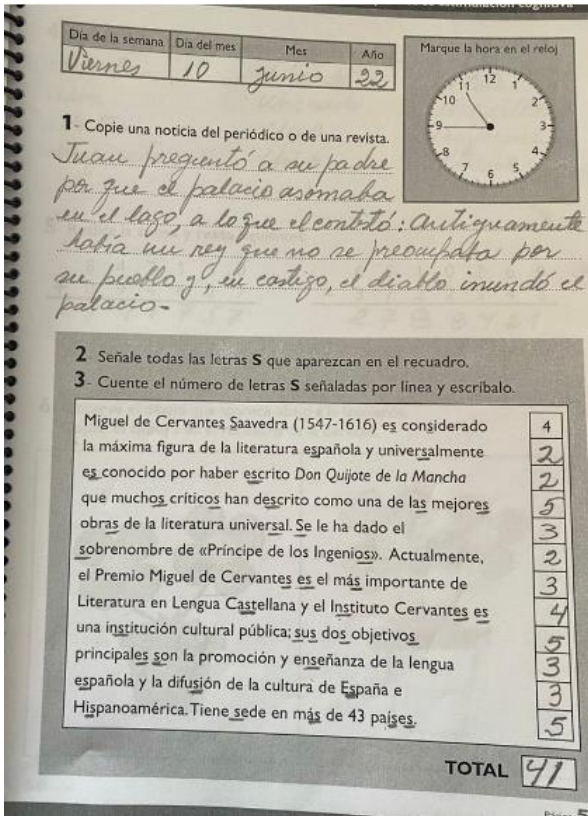 Día de la semana Día del mes Mes Año
Viernes 10 Junio 22
Marque la hora en el reloj
12
11 1
10 2
9 3
8 4
7 5
6
1- Copie una noticia del periódico o de una revista.
Juan preguntó a su padre
por que el palacio asomaba
en el lago, a lo que el contestó: Antiguamente
había un rey que no se preocupaba por
su pueblo y, en castigo, el diablo inundó el
palacio-
2- Señale todas las letras S que aparezcan en el recuadro.
3- Cuente el número de letras S señaladas por línea y escríbalo.
Miguel de Cervantes Saavedra (1547-1616) es considerado 4
la máxima figura de la literatura española y universalmente 2
es conocido por haber escrito Don Quijote de la Mancha 2
que muchos críticos han descrito como una de las mejores 5
obras de la literatura universal. Se le ha dado el 3
sobrenombre de «Príncipe de los Ingenios». Actualmente, 2
el Premio Miguel de Cervantes es el más importante de 3
Literatura en Lengua Castellana y el Instituto Cervantes es 4
una institución cultural pública; sus dos objetivos 5
principales son la promoción y enseñanza de la lengua 3
española y la difusión de la cultura de España e 3
Hispanoamérica. Tiene sede en más de 43 países. 5
TOTAL 41